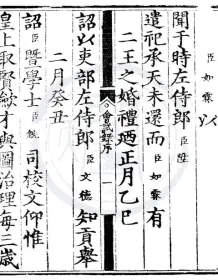 臣如霖以
聞于時左侍郎臣陞
遣祀承天未還而臣如霖有
二王之婚禮廼正月乙巳
會試錄序 一
二月癸丑
詔以吏部左侍郎臣文德知貢舉
臣暨學士臣 司校文仰惟
皇上取賢歛才與圖治理每三歲